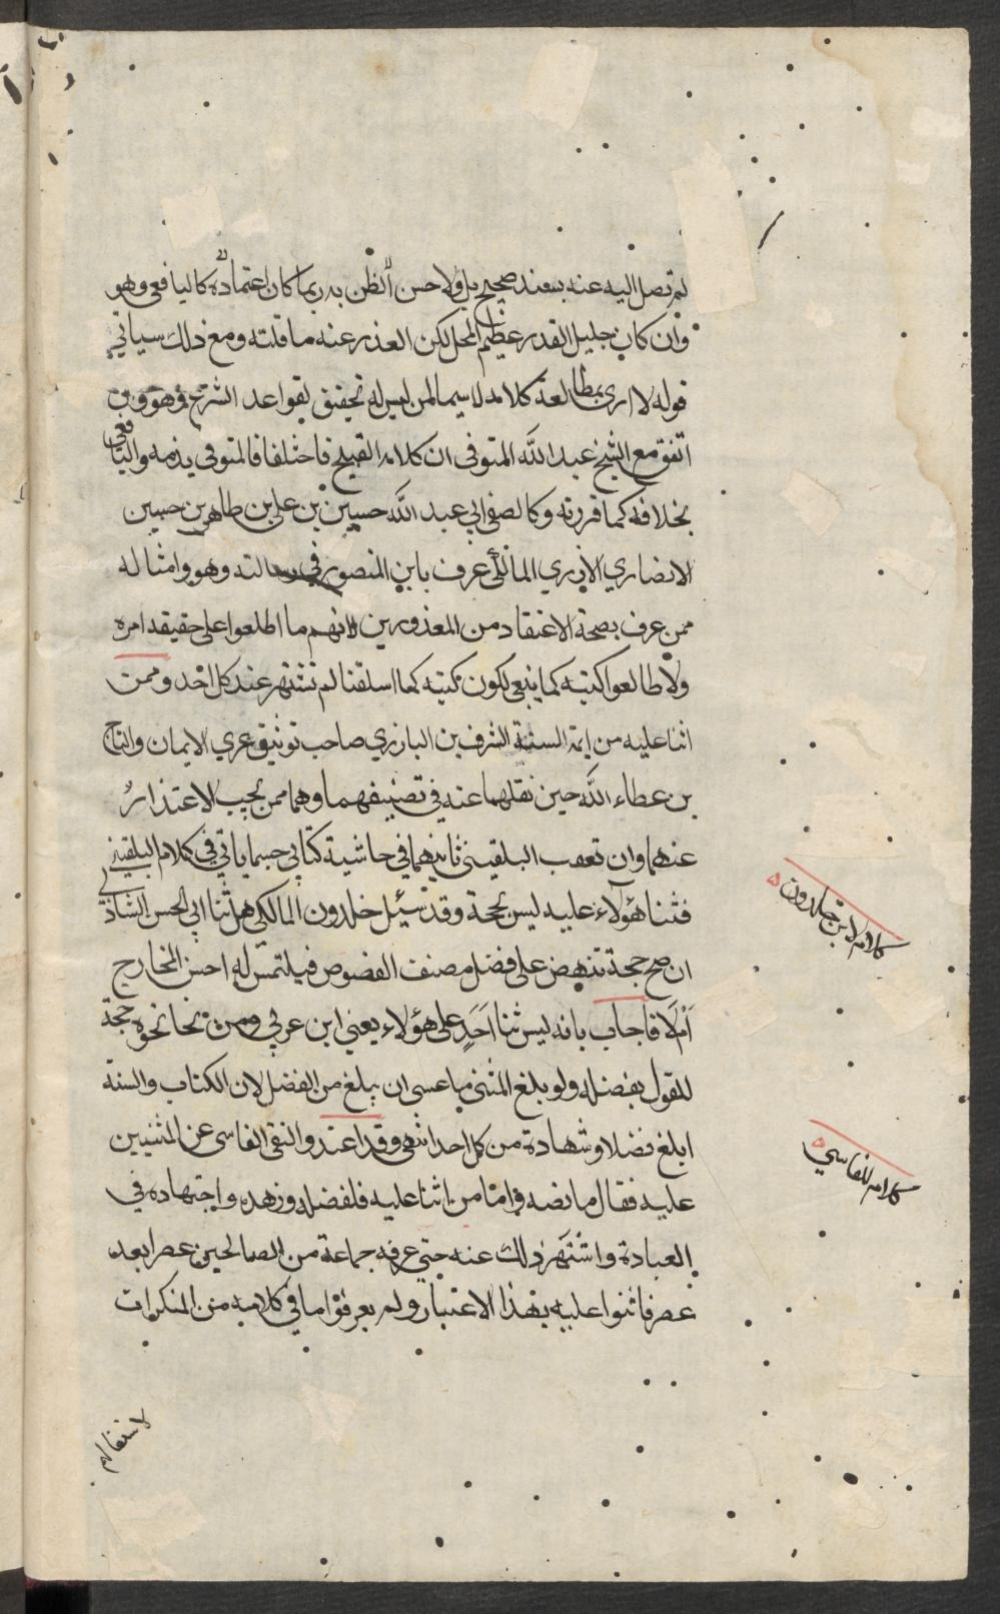 لم تصل اليه عنه بسند صحيح بل ولا حسن الظن به ربما كان اعتماده كاليافعي وهو
وان كان جليل القدر عظيم المحل لكن العذر عنه ما قلته ومع ذلك سياتي
قوله لا ارى بمطالعة كلامه لا سيما لمن ليس له تحقيق لقواعد الشرع وهو ووو
اتفق مع الشيخ عبد الله المتوفي ان كلامه القبيح فاختلفا فالمتوفي يذمه واليافعي
بخلافه كما قررته وكالصفي ابي عبد الله حسين بن علي بن طاهر بن حسين
الانصاري الازري المالكي عرف بابن المنصور في رسالته وهو وامثاله
ممن عرف بصحة الاعتقاد من المعذورين لانهم ما اطلعوا على حقيقة امره
ولا طالعوا كتبه كما ينبغي لكون كتبه كما اسلفنا لم تشتهر عند كل احد وممن
اثنا عليه من ايمة السنة الشرف بن البارزي صاحب توثيق عري الايمان والتاج
بن عطاء الله حين نقلهما عنه في تصنيفهما وهما ممن يجب الاعتذار
عنهما وان تعقب البلقيني ثانيهما في حاشية كتابي حسبما ياتي في كلام البلقيني
فثنا هؤلاء عليه ليس بحجة وقد سئيل خلدون المالكي هل ثنا ابي الحسن الشاذلي
ان صح حجة تنهض على فضل مصنف الفصوص فيلتمس له احسن المخارج
ام لا فاجاب بانه ليس ثنا احد على هؤلاء يعني ابن عربي ومن نحا نحوه حجة
للقول بفضله ولو بلغ المثني ما عسى ان يبلغ من الفضل لان الكتاب والسنة
ابلغ فضلا وشهادة من كل احد انتهى وقد اعتذر التقي الفاسي عن المثنيين
عليه فقال ما نصه واما من اثنا عليه فلفضله وزهده واجتهاده في
العبادة واشتهر ذلك عنه حتى عرفه جماعة من الصالحين عصرا بعد
عصر فاثنوا عليه بهذا الاعتبار ولم يعرفوا ما في كلامه من المنكرات
كلام ابن خلدون
كلام الفاسي
لاشتغالهم